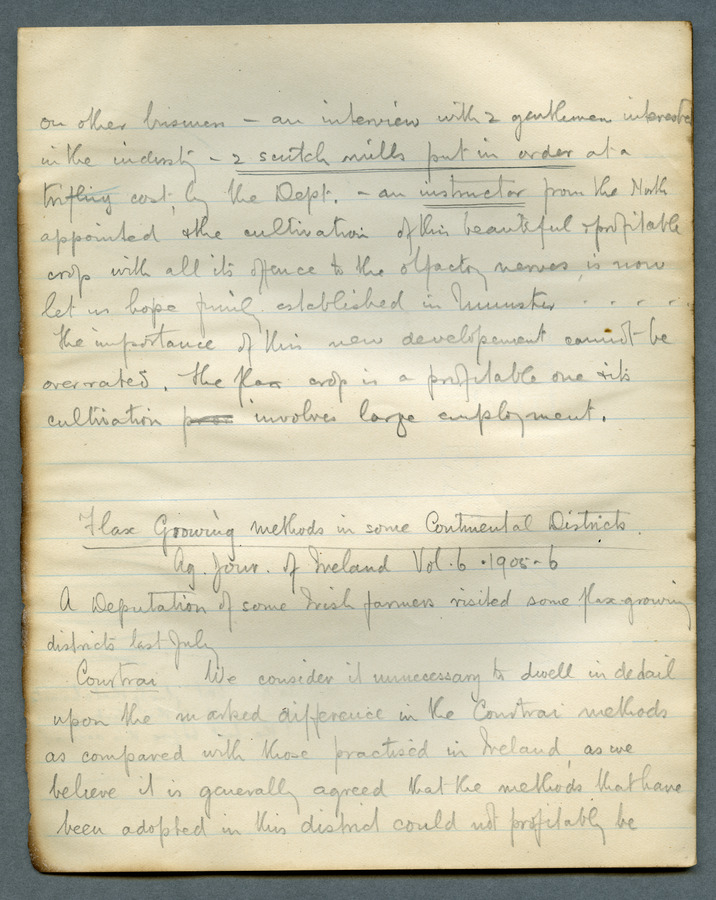 on other business – an interview with 2 gentlemen interested
in the industry – 2 scutch mills put in order at a
trifling cost, by the Dept. – an instructor from the North
appointed & the cultivation of this beautiful & profitable
crop with all its offence to the olfactory nerves, is now
let us hope firmly established in Munster . . . .
The importance of this new developement cannot be
overrated. The flax crop is a profitable one & its
cultivation involves large employment.
Flax Growing methods in some Continental Districts.
Ag. Jour. of Ireland Vol. 6 . 1905-6
A Deputation of some Irish farmers visited some flax-growing
districts last July
Courtrai We consider it unnecessary to dwell in detail
upon the marked difference in the Courtrai methods
as compared with those practised in Ireland, as we
believe it is generally agreed that the methods that have
been adopted in this district could not profitably be